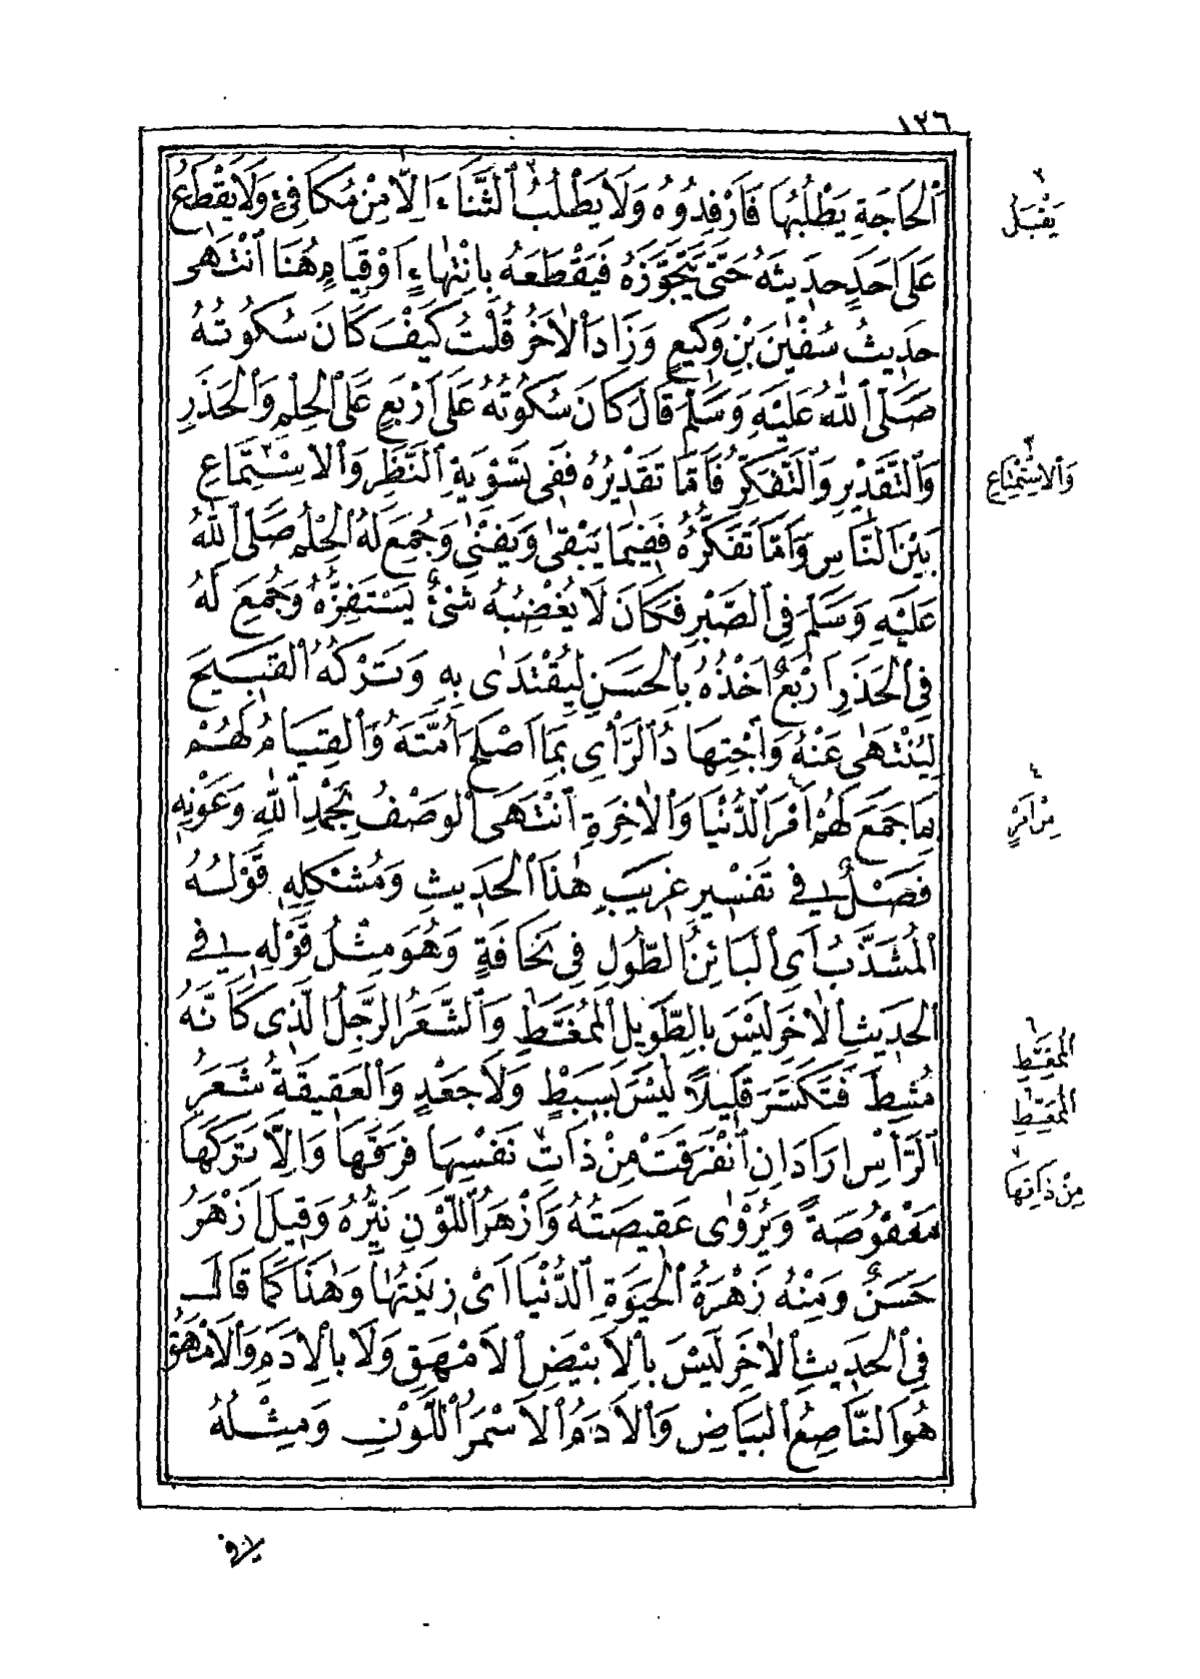 ١٢٦
اَلْحَاجَةِ يَطْلُبُهَا فَاَرْفِدُوهُ وَلَا يَطْلُبُ الثَّنَاءَ اِلَّا مِنْ مُكَافِئٍ وَلَا يَقْطَعُ
عَلَى اَحَدٍ حَدِيثَهُ حَتّٰى يَتَجَوَّزَهُ فَيَقْطَعَهُ بِانْتِهَاءٍ اَوْ قِيَامٍ هُنَا انْتَهٰى
حَدِيثُ سُفْيٰنَ بْنِ وَكِيعٍ وَزَادَ الْاٰخَرُ قُلْتُ كَيْفَ كَانَ سُكُوتُهُ
صَلَّى اللّٰهُ عَلَيْهِ وَسَلَّمَ قَالَ كَانَ سُكُوتُهُ عَلٰى اَرْبَعٍ عَلَى الْحِلْمِ وَالْحَذَرِ
وَالتَّقْدِيرِ وَالتَّفَكُّرِ فَاَمَّا تَقْدِيرُهُ فَفِى تَسْوِيَةِ النَّظَرِ وَالْاِسْتِمَاعِ
بَيْنَ النَّاسِ وَاَمَّا تَفَكُّرُهُ فَفِيمَا يَبْقٰى وَيَفْنٰى وَجُمِعَ لَهُ الْحِلْمُ صَلَّى اللّٰهُ
عَلَيْهِ وَسَلَّمَ فِى الصَّبْرِ فَكَانَ لَا يُغْضِبُهُ شَىْءٌ يَسْتَفِزُّهُ وَجُمِعَ لَهُ
فِى الْحَذَرِ اَرْبَعٌ اَخْذُهُ بِالْحَسَنِ لِيُقْتَدٰى بِهِ وَتَرْكُهُ الْقَبِيحَ
لِيُنْتَهٰى عَنْهُ وَاجْتِهَادُ الرَّأْىِ بِمَا اَصْلَحَ اُمَّتَهُ وَالْقِيَامُ لَهُمْ
بِمَا جَمَعَ لَهُمْ اَمْرَ الدُّنْيَا وَالْاٰخِرَةِ انْتَهَى الْوَصْفُ بِحَمْدِ اللّٰهِ وَعَوْنِهِ
فَصْلٌ فِى تَفْسِيرِ غَرِيبِ هٰذَا الْحَدِيثِ وَمُشْكِلِهِ قَوْلُهُ
الْمُشَذَّبُ اَىِ الْبَائِنُ الطُّولِ فِى نَحَافَةٍ وَهُوَ مِثْلُ قَوْلِهِ فِى
الْحَدِيثِ الْاٰخَرِ لَيْسَ بِالطَّوِيلِ الْمُمَغَّطِ وَالشَّعَرُ الرَّجِلُ الَّذِى كَاَنَّهُ
مُشِطَ فَتَكَسَّرَ قَلِيلًا لَيْسَ بِسَبْطٍ وَلَا جَعْدٍ وَالْعَقِيقَةُ شَعَرُ
الرَّأْسِ اَرَادَ اِنِ انْفَرَقَتْ مِنْ ذَاتِ نَفْسِهَا فَرَقَهَا وَاِلَّا تَرَكَهَا
مَعْقُوصَةً وَيُرْوٰى عَقِيصَتُهُ وَاَزْهَرُ اللَّوْنِ نَيِّرُهُ وَقِيلَ اَزْهَرُ
حَسَنٌ وَمِنْهُ زَهْرَةُ الْحَيٰوةِ الدُّنْيَا اَىْ زِينَتُهَا وَهٰذَا كَمَا قَالَ
فِى الْحَدِيثِ الْاٰخَرِ لَيْسَ بِالْاَبْيَضِ الْاَمْهَقِ وَلَا بِالْاٰدَمِ وَالْاَمْهَقُ
هُوَ النَّاصِعُ الْبَيَاضِ وَالْاٰدَمُ الْاَسْمَرُ اللَّوْنِ وَمِثْلُهُ
٢
يَقْبَلُ
٣
وَالْاِسْتِمْتَاعِ
٤
مِنْ اَمْرِ
٦
الْمُمَغَّطِ
الْمُمَّغِطِ
٧
مِنْ ذَاتِهَا